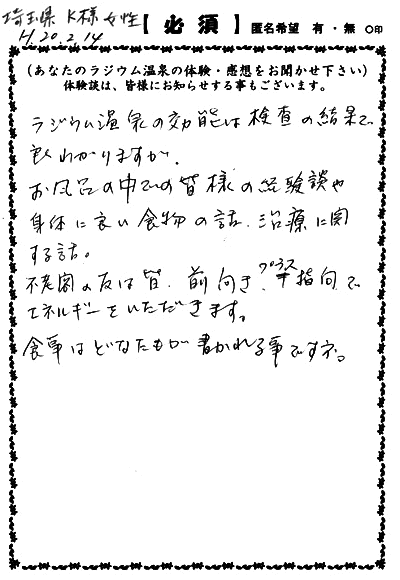 埼玉県 K様 女性 【必須】 匿名希望 有・無 ○印
H.20.2.14
(あなたのラジウム温泉の体験・感想をお聞かせ下さい)
体験談は、皆様にお知らせする事もございます。
ラジウム温泉の効能は検査の結果で
良くわかりますが、
お風呂の中での皆様の経験談や
身体に良い食物の話、治療に関
する話。
不老閣の友は皆、前向き、プラス指向で
エネルギーをいただきます。
食事はどなたもが書かれる事ですネ。